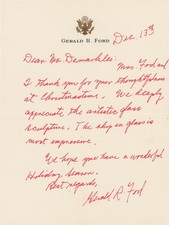 GERALD R. FORD
Dec. 13th
Dear Mr.
Mrs. Ford and
I thank you for your thoughtfulness
at Christmastime. We deeply
appreciate the artistic glass
sculpture. The ship in glass is
most impressive.
We hope you have a wonderful
Holiday Season.
Best regards,
Gerald R. Ford